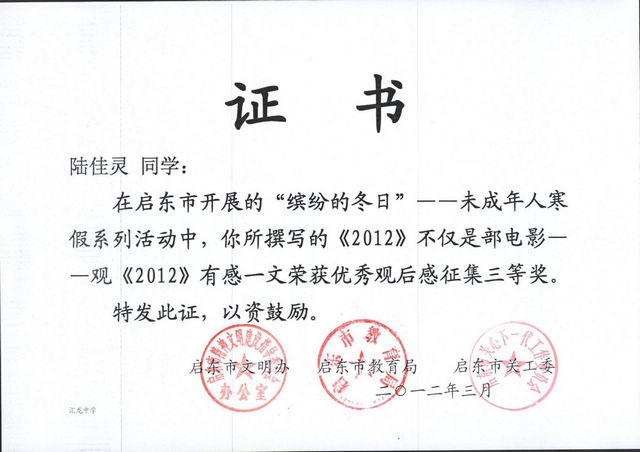 证 书
陆佳灵 同学：
在启东市开展的“缤纷的冬日”——未成年人寒
假系列活动中，你所撰写的《2012》不仅是部电影—
—观《2012》有感一文荣获优秀观后感征集三等奖。
特发此证，以资鼓励。
启东市文明办 启东市教育局 启东市关工委
二〇一二年三月
办公室
启东市教育局
汇龙中学